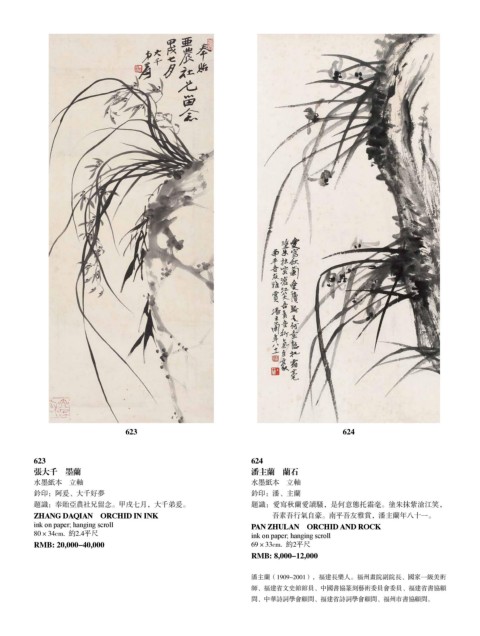 奉貽
亞農社兄留念
甲戌七月
大千
弟爰
愛寫秋蘭愛讀騷是何意態托霜毫
塗朱抹紫滄江笑吾素吾行氣自豪
南平吾友雅賞
潘主蘭年八十一
623
624
623
張大千 墨蘭
水墨紙本 立軸
鈐印：阿爰、大千好夢
題識：奉貽亞農社兄留念。甲戌七月，大千弟爰。
ZHANG DAQIAN ORCHID IN INK
ink on paper; hanging scroll
80 × 34cm. 約2.4平尺
RMB: 20,000–40,000
624
潘主蘭 蘭石
水墨紙本 立軸
鈐印：潘、主蘭
題識：愛寫秋蘭愛讀騷，是何意態托霜毫。塗朱抹紫滄江笑，
吾素吾行氣自豪。南平吾友雅賞，潘主蘭年八十一。
PAN ZHULAN ORCHID AND ROCK
ink on paper; hanging scroll
69 × 33cm. 約2平尺
RMB: 8,000–12,000
潘主蘭（1909–2001），福建長樂人。福州畫院副院長、國家一級美術
師、福建省文史館館員、中國書協篆刻藝術委員會委員、福建省書協顧
問、中華詩詞學會顧問、福建省詩詞學會顧問、福州市書協顧問。